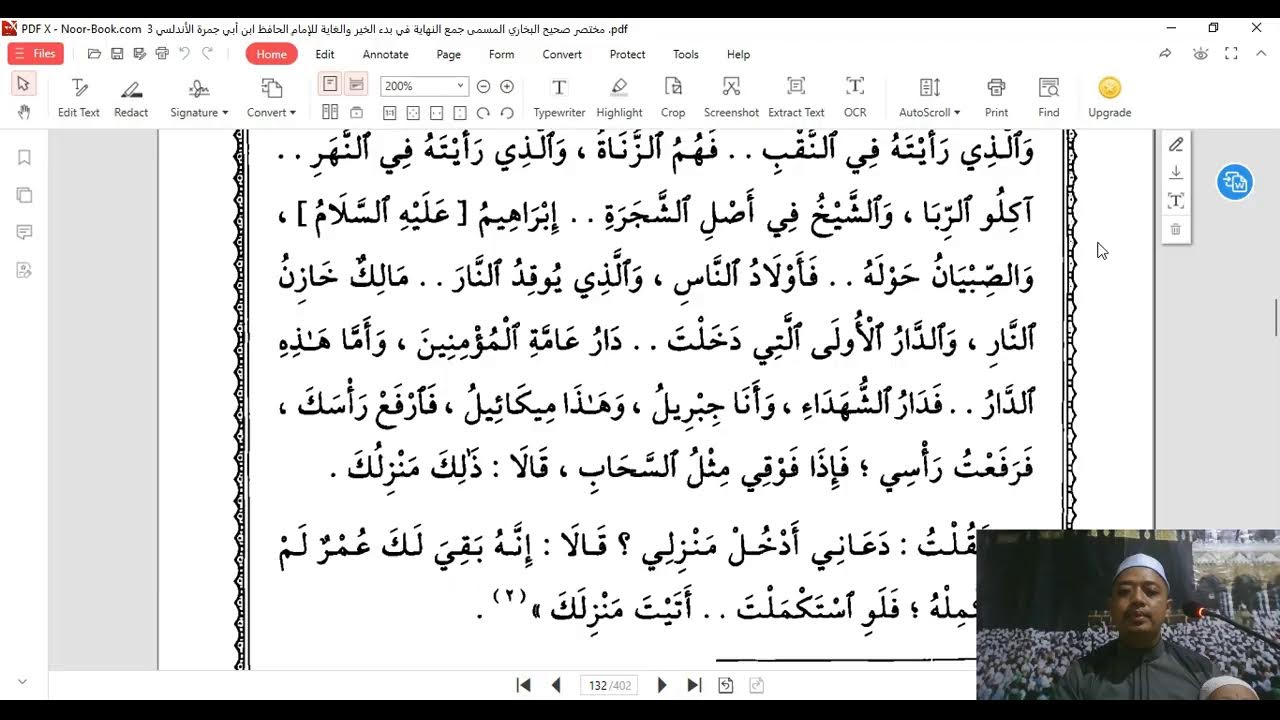 PDF X - Noor-Book.com مختصر صحيح البخاري المسمى جمع النهاية في بدء الخير والغاية للإمام الحافظ ابن أبي جمرة الأندلسي 3 .pdf
Files Home Edit Annotate Page Form Convert Protect Tools Help
200%
Edit Text Redact Signature Convert Typewriter Highlight Crop Screenshot Extract Text OCR AutoScroll Print Find Upgrade
وَٱلَّذِي رَأَيْتَهُ فِي ٱلنَّقْبِ . . فَهُمُ ٱلزُّنَاةُ ، وَٱلَّذِي رَأَيْتَهُ فِي ٱلنَّهَرِ . .
آكِلُو ٱلرِّبَا ، وَٱلشَّيْخُ فِي أَصْلِ ٱلشَّجَرَةِ . . إِبْرَاهِيمُ [ عَلَيْهِ ٱلسَّلَامُ ] ،
وَالصِّبْيَانُ حَوْلَهُ . . فَأَوْلَادُ ٱلنَّاسِ ، وَٱلَّذِي يُوقِدُ ٱلنَّارَ . . مَالِكٌ خَازِنُ
ٱلنَّارِ ، وَٱلدَّارُ ٱلْأُولَى ٱلَّتِي دَخَلْتَ . . دَارُ عَامَّةِ ٱلْمُؤْمِنِينَ ، وَأَمَّا هَـٰذِهِ
ٱلدَّارُ . . فَدَارُ ٱلشُّهَدَاءِ ، وَأَنَا جِبْرِيلُ ، وَهَـٰذَا مِيكَائِيلُ ، فَٱرْفَعْ رَأْسَكَ ،
فَرَفَعْتُ رَأْسِي ؛ فَإِذَا فَوْقِي مِثْلُ ٱلسَّحَابِ ، قَالَا : ذَٰلِكَ مَنْزِلُكَ .
فَقُلْتُ : دَعَانِي أَدْخُلْ مَنْزِلِي ؟ قَالَا : إِنَّهُ بَقِيَ لَكَ عُمْرٌ لَمْ
فَلَوِ ٱسْتَكْمَلْتَ . . أَتَيْتَ مَنْزِلَكَ » (٢) .
132 /402